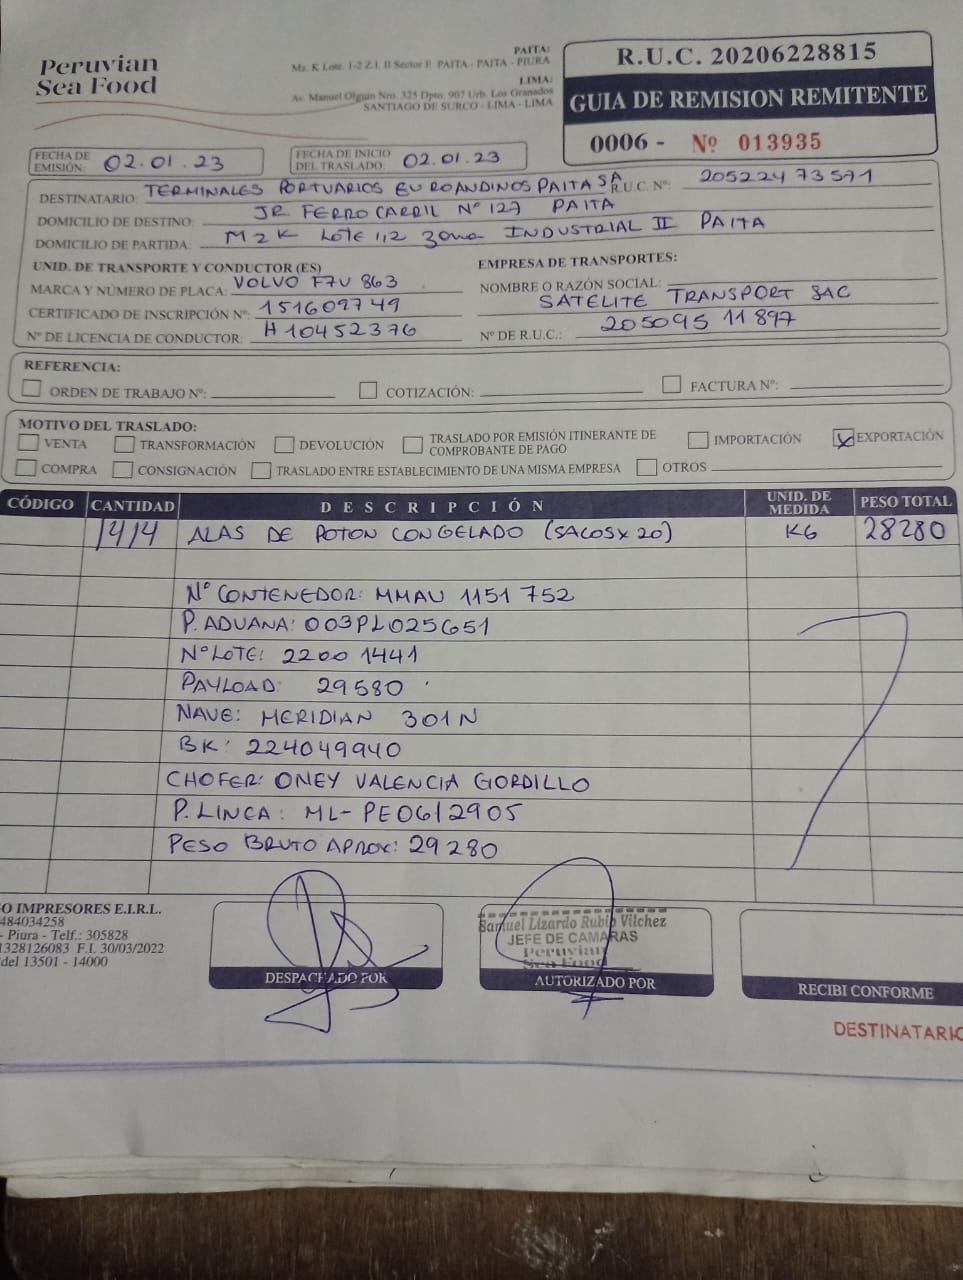 Peruvian
Sea Food
PAITA:
Mz. K Lote. 1-2 Z.I. II Sector E PAITA - PAITA - PIURA
LIMA:
Av. Manuel Olguin Nro. 325 Dpto. 907 Urb. Los Granados
SANTIAGO DE SURCO - LIMA - LIMA
R.U.C. 20206228815
GUIA DE REMISION REMITENTE
0006 - Nº 013935
FECHA DE EMISIÓN: 02.01.23
FECHA DE INICIO DEL TRASLADO: 02.01.23
DESTINATARIO: TERMINALES PORTUARIOS EUROANDINOS PAITA SA R.U.C. Nº: 20522473571
DOMICILIO DE DESTINO: JR. FERROCARRIL Nº 127 PAITA
DOMICILIO DE PARTIDA: MZK LOTE 1,2 zona INDUSTRIAL II PAITA
UNID. DE TRANSPORTE Y CONDUCTOR (ES)
MARCA Y NÚMERO DE PLACA: VOLVO F7U 863
CERTIFICADO DE INSCRIPCIÓN Nº: 151609749
Nº DE LICENCIA DE CONDUCTOR: H10452376
EMPRESA DE TRANSPORTES:
NOMBRE O RAZÓN SOCIAL:
SATELITE TRANSPORT SAC
Nº DE R.U.C.: 20509511897
REFERENCIA:
ORDEN DE TRABAJO Nº: COTIZACIÓN: FACTURA Nº:
MOTIVO DEL TRASLADO:
VENTA TRANSFORMACIÓN DEVOLUCIÓN TRASLADO POR EMISIÓN ITINERANTE DE COMPROBANTE DE PAGO IMPORTACIÓN EXPORTACIÓN
COMPRA CONSIGNACIÓN TRASLADO ENTRE ESTABLECIMIENTO DE UNA MISMA EMPRESA OTROS
CÓDIGO CANTIDAD DESCRIPCIÓN UNID. DE MEDIDA PESO TOTAL
1414 ALAS DE POTON CONGELADO (SACOS x 20) KG 28280
Nº CONTENEDOR: MMAU 1151 752
P. ADUANA: 003PL025651
Nº LOTE: 22001441
PAYLOAD: 29580
NAVE: MERIDIAN 301N
BK: 224049940
CHOFER: ONEY VALENCIA GORDILLO
P. LINEA: ML-PE0612905
PESO BRUTO APROX: 29280
O IMPRESORES E.I.R.L.
484034258
- Piura - Telf.: 305828
1328126083 F.I. 30/03/2022
del 13501 - 14000
DESPACHADO POR
Samuel Lizardo Rubio Vilchez
JEFE DE CAMARAS
Peruvian
Sea Food
AUTORIZADO POR
RECIBI CONFORME
DESTINATARIO